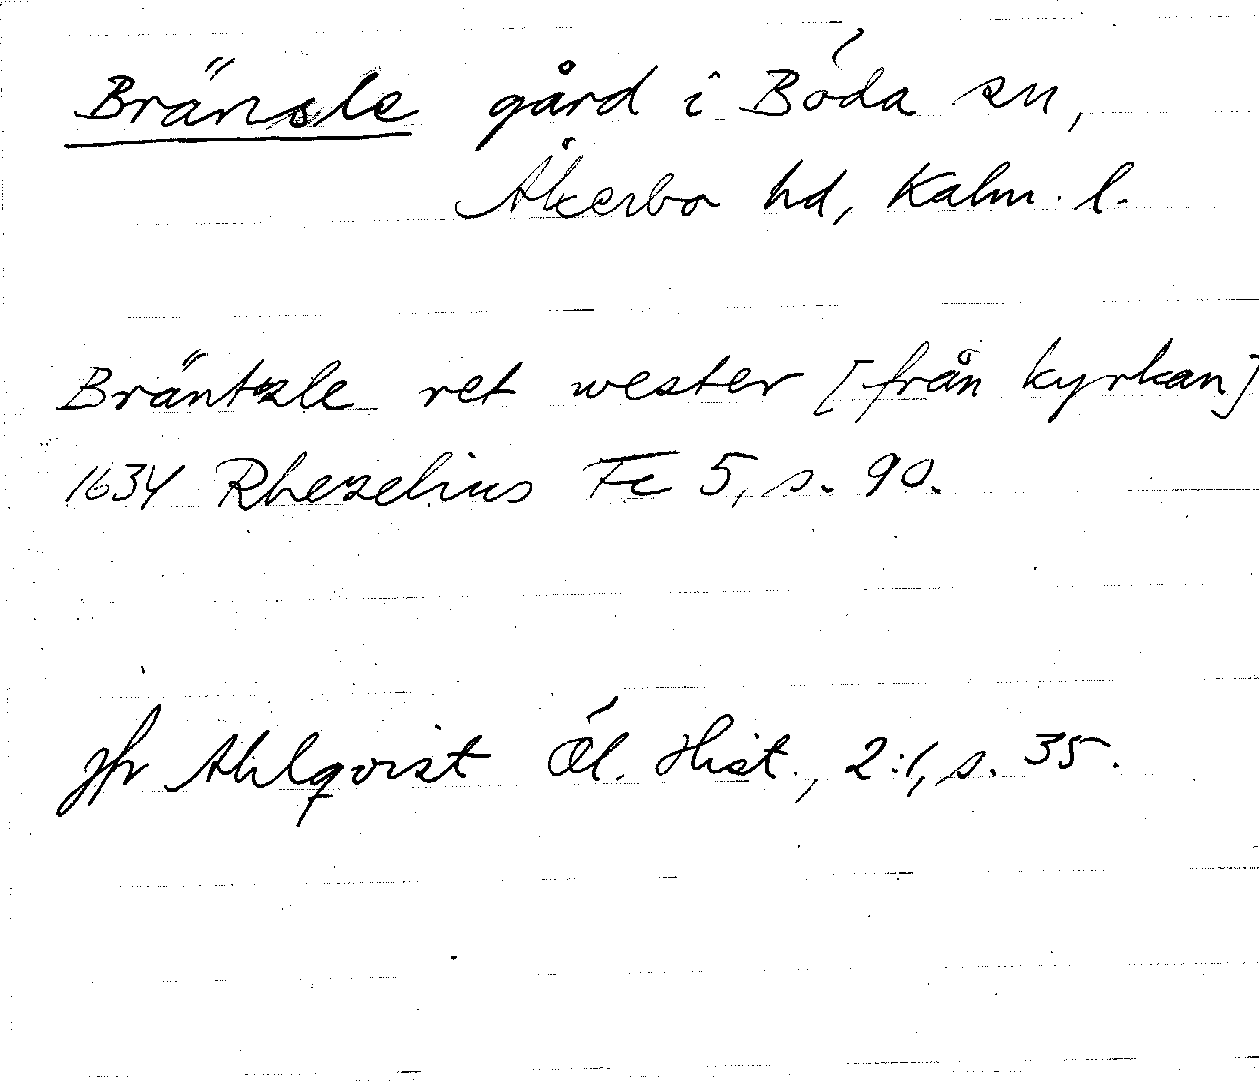 Bränsle gård i Böda sn,
Åkerbo hd, Kalm. l.
Bräntzle ret wester [från kyrkan]
1634 Rhezelius Fc 5, s. 90.
jfr Ahlqvist Öl. Hist., 2:1, s. 35.